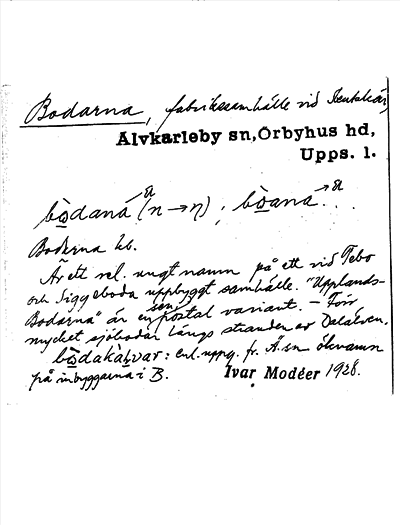 Bodarna, fabrikssamhälle vid Skutskär,
Älvkarleby sn, Örbyhus hd,
Upps. l.
bo̲daná (n→η); bo̲ana.
Boderna kb.
Är ett rel. ungt namn på ett vid Tebo
och Siggeboda uppbyggt samhälle. "Upplands-
Bodarna" är en postal variant. – Förr
mycket sjöbodar längs stranden av Dalälven.
bo̲dakàl̲var: enl. uppg. fr. Ä. sn öknamn
på inbyggarna i B.
Ivar Modéer 1928.